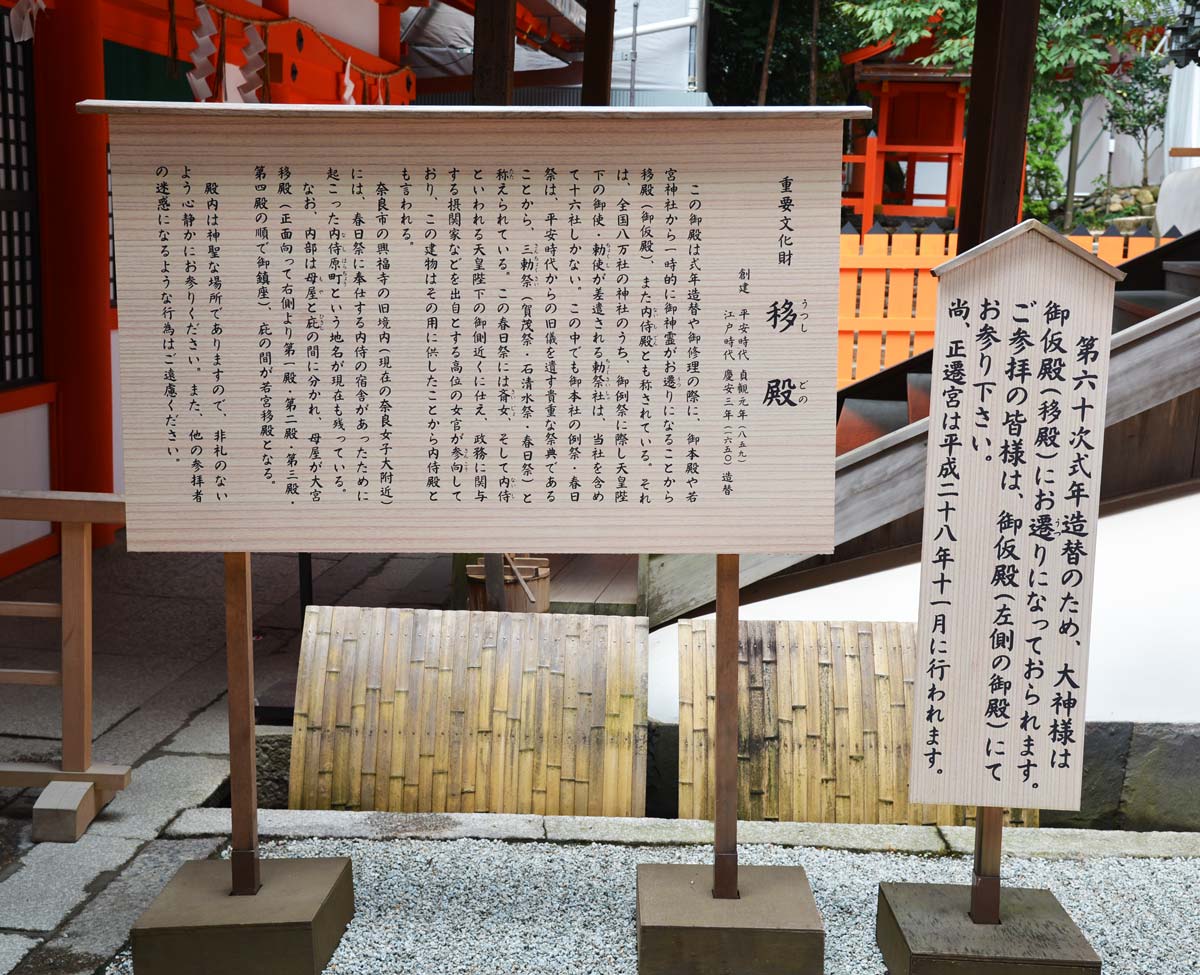 重要文化財
移殿
うつし どの
創建 平安時代 貞観元年(八五九)
江戸時代 慶安三年(一六五〇)造替
この御殿は式年造替や御修理の際に、御本殿や若
宮神社から一時的に御神霊がお遷りになることから
移殿(御仮殿)、また内侍殿とも称されている。それ
は、全国八万社の神社のうち、御例祭に際し天皇陛
下の御使・勅使が差遣される勅祭社は、当社を含め
て十六社しかない。この中でも御本社の例祭・春日
祭は、平安時代からの旧儀を遺す貴重な祭典である
ことから、三勅祭(賀茂祭・石清水祭・春日祭)と
称えられている。この春日祭には斎女、そして内侍
といわれる天皇陛下の御側近くに仕え、政務に関与
する摂関家などを出自とする高位の女官が参向して
おり、この建物はその用に供したことから内侍殿と
も言われる。
奈良市の興福寺の旧境内(現在の奈良女子大附近)
には、春日祭に奉仕する内侍の宿舎があったために
起こった内侍原町という地名が現在も残っている。
なお、内部は母屋と庇の間に分かれ、母屋が大宮
移殿(正面向って右側より第一殿・第二殿・第三殿・
第四殿の順で御鎮座)、庇の間が若宮移殿となる。
殿内は神聖な場所でありますので、非礼のない
よう心静かにお参りください。また、他の参拝者
の迷惑になるような行為はご遠慮ください。
第六十次式年造替のため、大神様は
御仮殿(移殿)にお遷りになっておられます。
ご参拝の皆様は、御仮殿(左側の御殿)にて
お参り下さい。
尚、正遷宮は平成二十八年十一月に行われます。